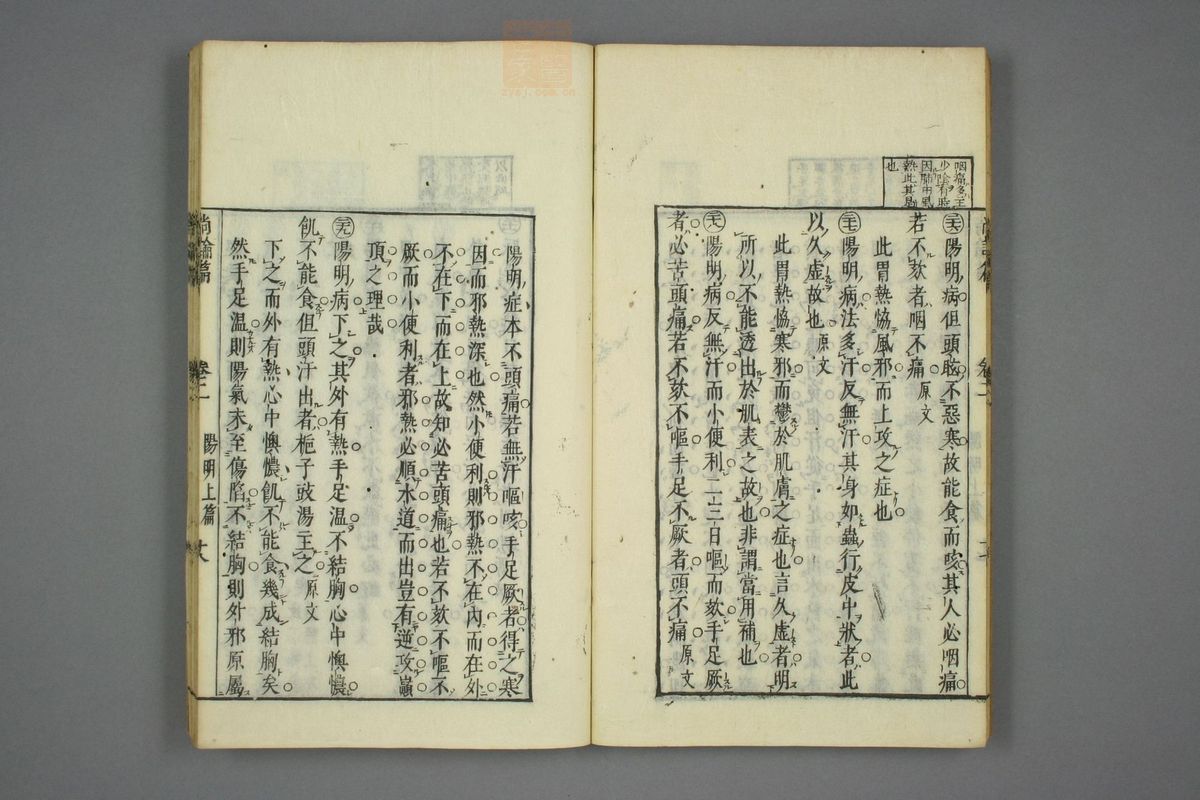 咽痛多主
少陰有時
因肺中風
熱此其易
也
㊅陽明病但頭眩不惡寒故能食而咳其人必咽痛
若不欬者咽不痛 原文
此胃熱恊風邪而上攻之症也
陽明病法多汗反無汗其身如蟲行皮中狀者此
以久虛故也 原文
此胃熱恊寒邪而鬱於肌膚之症也言久虛者明
所以不能透出於肌表之故也非謂當用補也
陽明病反無汗而小便利二三日嘔而欬手足厥
者必苦頭痛若不欬不嘔手足不厥者頭不痛 原文
陽明症本不頭痛若無汗嘔咳手足厥者得之寒
因而邪熱深也然小便利則邪熱不在內而在外
不在下而在上故知必苦頭痛也若不欬不嘔不
厥而小便利者邪熱必順水道而出豈有逆攻巔
頂之理哉
陽明病下之其外有熱手足溫不結胸心中懊憹
飢不能食但頭汗出者梔子豉湯主之 原文
下之而外有熱心中懊憹飢不能食幾成結胸矣
然手足溫則陽氣未至傷陷不結胸則外邪原屬
尚論篇 卷二 陽明上篇
zysj.com.cn